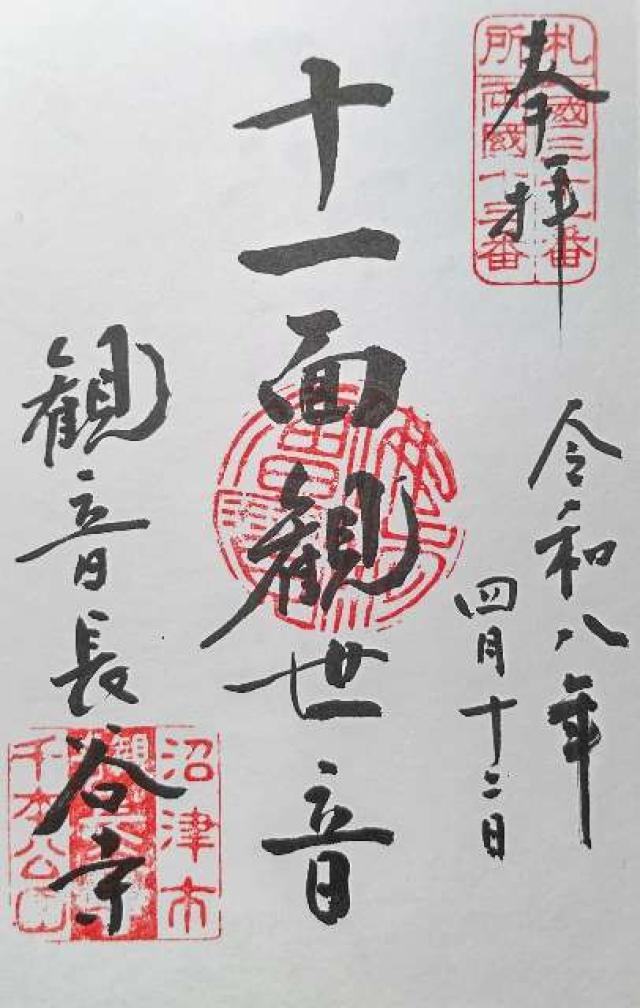 奉拝
札所
両國十三番
令和八年
四月十二日
十一面観世音
観音長谷寺
沼津市
千本公園